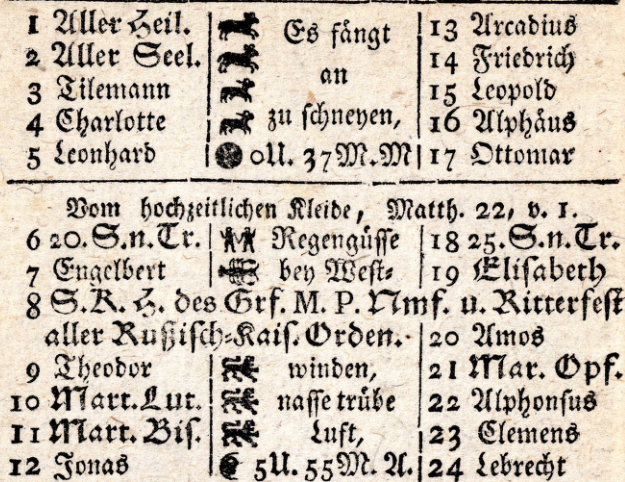 1 Aller Heil. Es fängt 13 Arcadius
2 Aller Seel. an 14 Friedrich
3 Tilemann 15 Leopold
4 Charlotte zu schneyen, 16 Alphäus
5 Leonhard 0U. 37M.M 17 Ottomar
Vom hochzeitlichen Kleide, Matth. 22, v. 1.
6 20. S. n. Tr. Regengüsse 18 25. S. n. Tr.
7 Engelbert bey West- 19 Elisabeth
8 S. K. H. des Grf. M. P. Nmf. u. Ritterfest
aller Rußisch-Kais. Orden. 20 Amos
9 Theodor winden, 21 Mar. Opf.
10 Mart. Lut. nasse trübe 22 Alphonsus
11 Mart. Bis. Luft, 23 Clemens
12 Jonas 5U. 55M. A. 24 Lebrecht